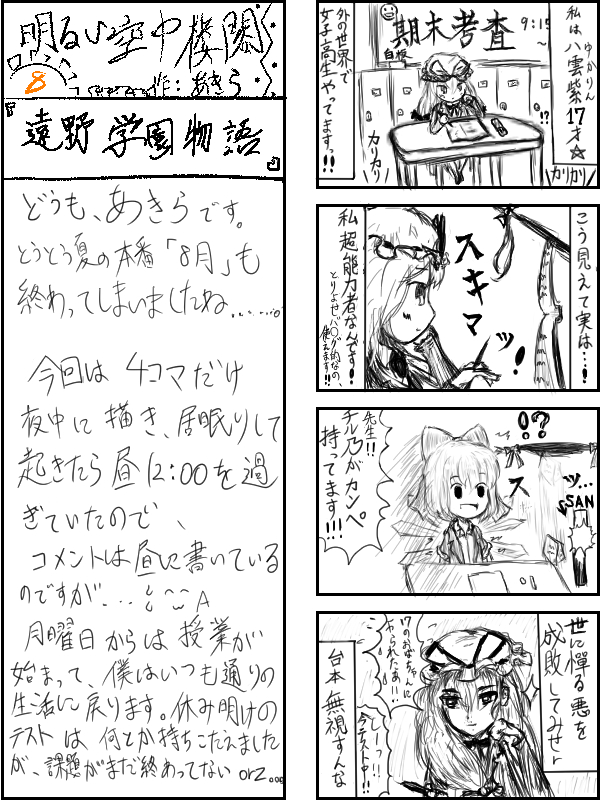 明るい空中楼閣
8
作：あきら
『遠野学園物語』
どうも、あきらです。
とうとう夏の本番「8月」も
終わってしまいましたね......。
今回は 4コマだけ
夜中に描き、居眠りして
起きたら昼12:00を過
ぎていたので、
コメントは昼に書いている
のですが...
月曜日からは授業が
始まって、僕はいつも通りの
生活に戻ります。休み明けの
テストは何とか持ちこたえました
が、課題がまだ終わってない orz...
私は八雲紫17才☆
ゆかりん
期末考査
9:15
~
白板
!?
カリカリ
カリカリ
外の世界で
女子高生やってますっ!!
こう見えて実は…!
スキマッ!
私超能力者なんです!
とりよせバ〇グ的なの、
使えます!!
!?
ッ…
SAN
ス
先生!!
チル乃がカンペ
持ってます!!!
世に憚る悪を
成敗してみせ
17のおばちゃんに
やられたあー!!
しーっ!!
今テスト中!!
台本無視すんな